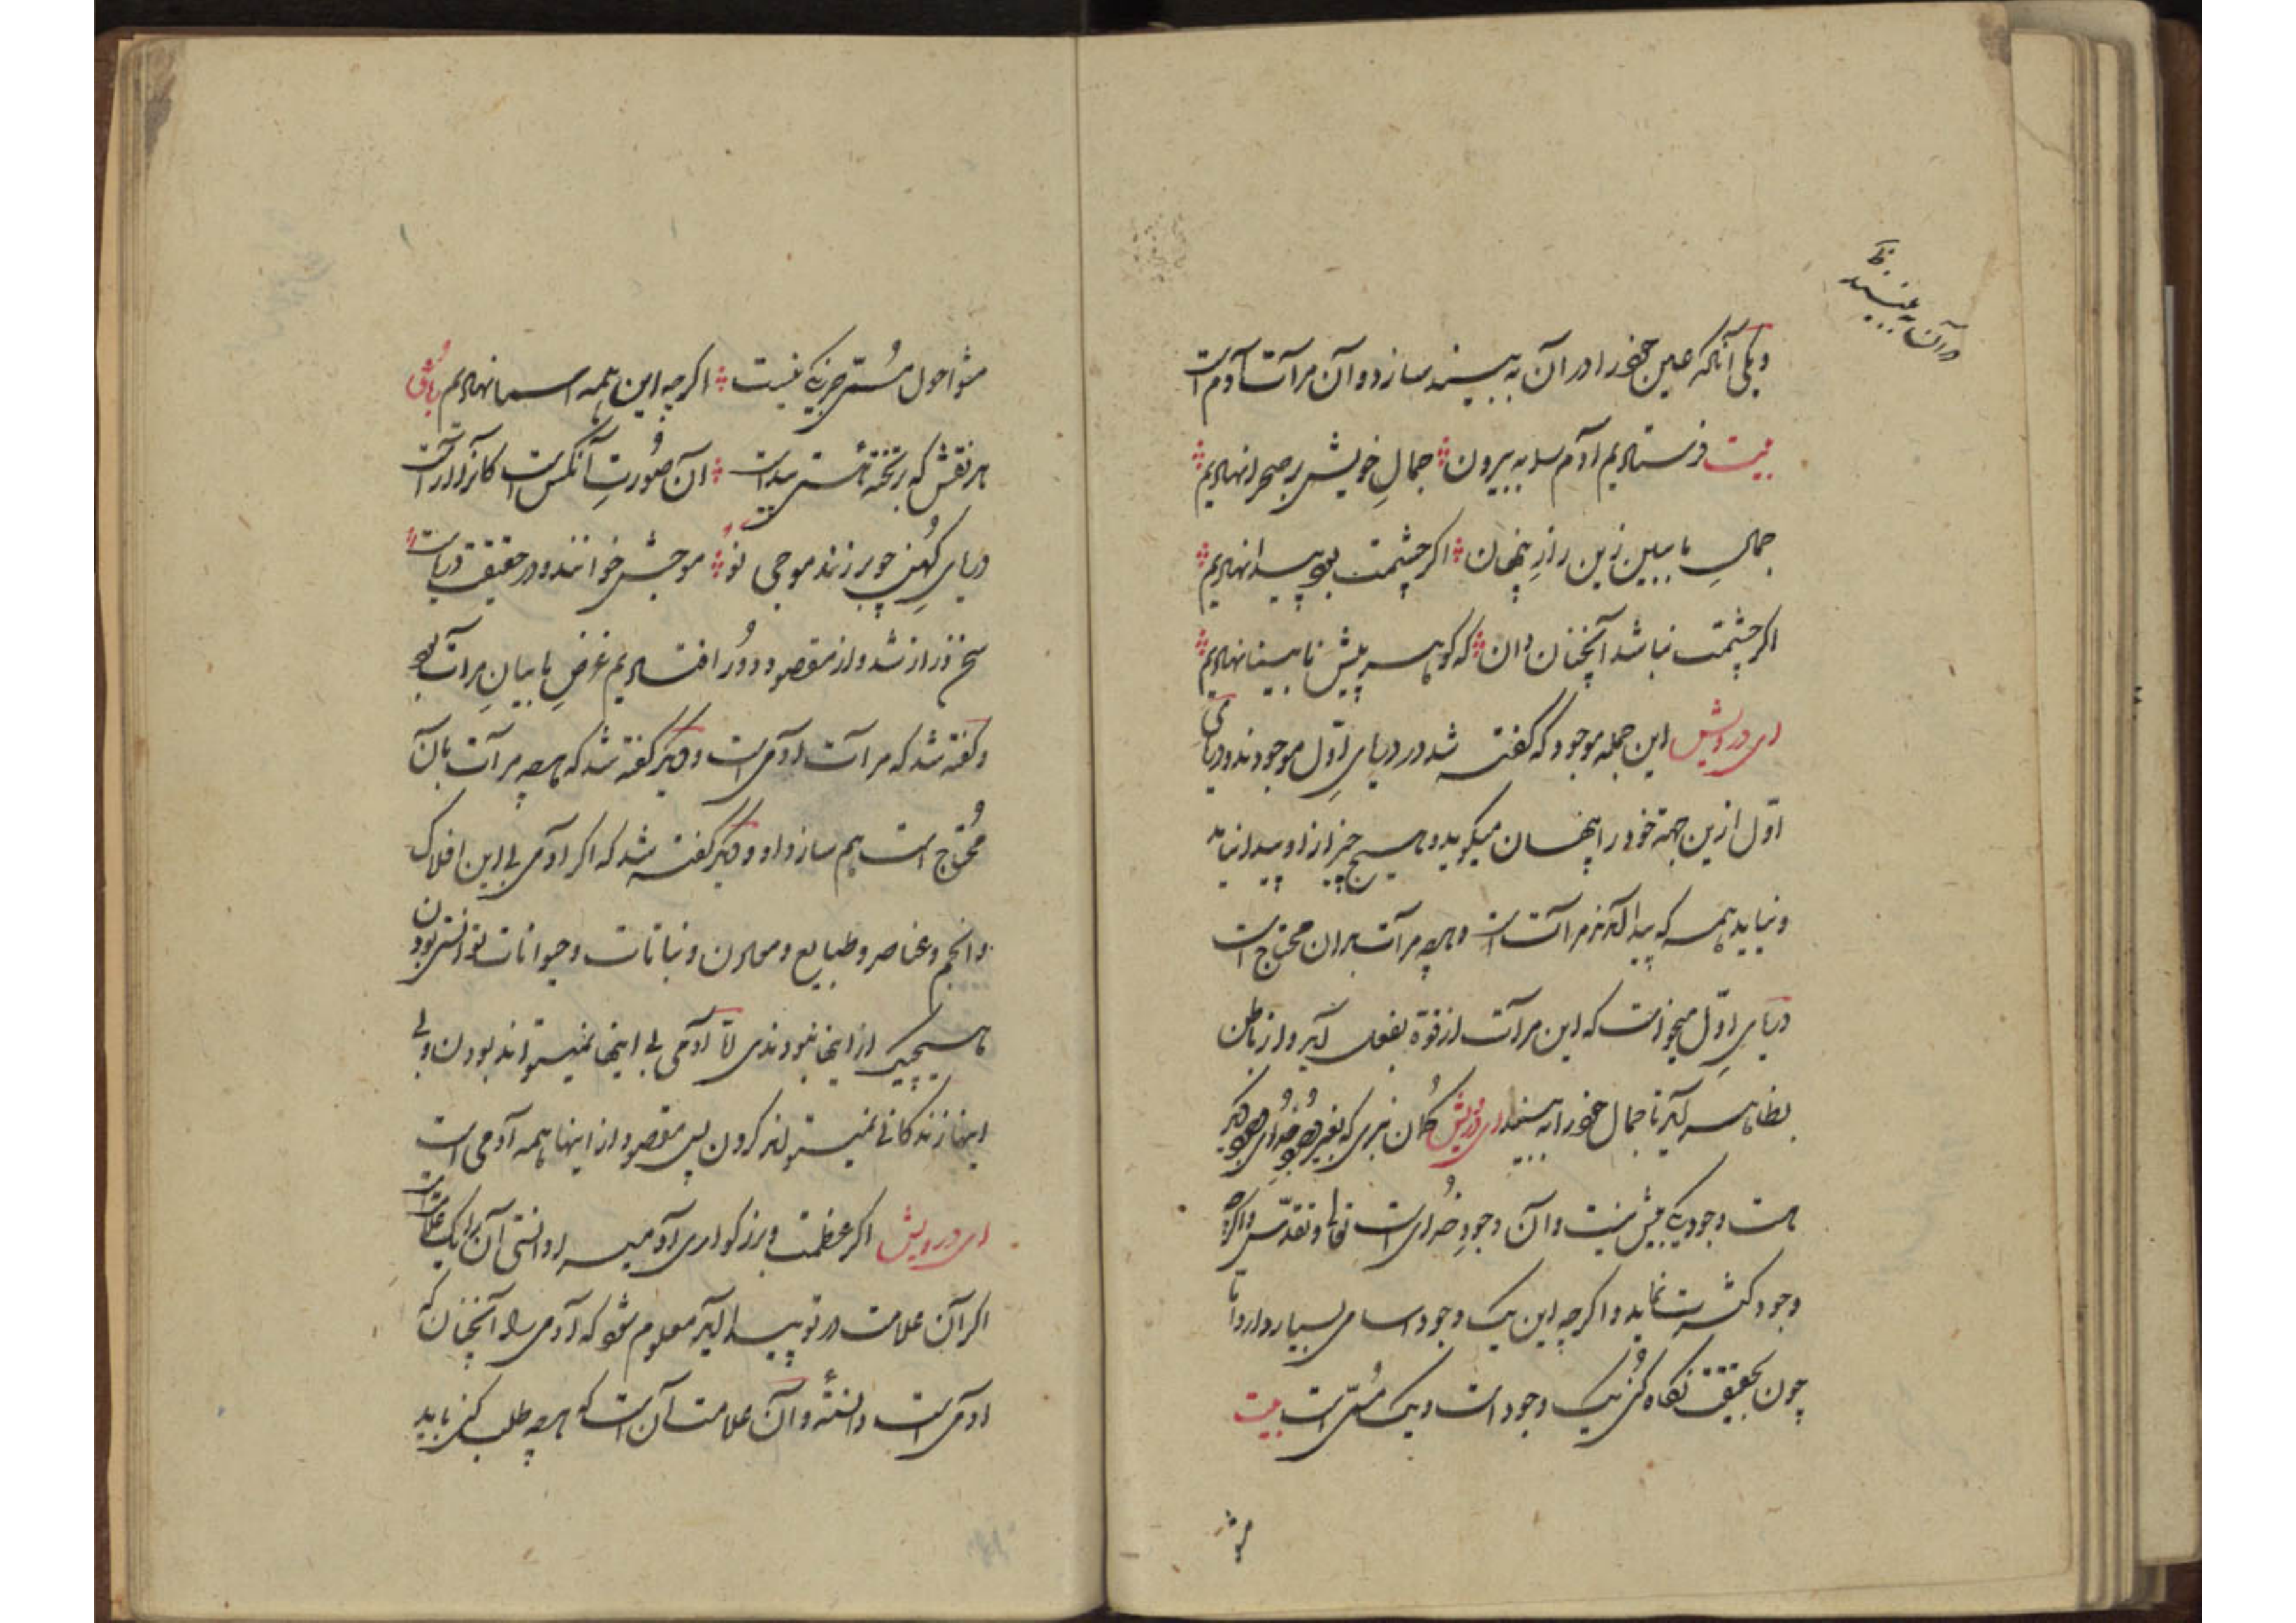 در آن به بیند
ویکی آنکه عین خود را در آن به بیند سازد و آن مرآت آدم است
بیت فرستادیم آدم را به بیرون جمال خویش بر صحرا نهادیم
جمالِ ما ببین زین رازِ پنهان اگر چشمت بود پیدا نهادیم
اگر چشمت نباشد آنچنان دان که گوهر پیش نابینا نهادیم
ای درویش این جمله موجود که گفته شد در دریای اوّل موجودند و دریای
اوّل ازین جهة خود را پنهان میگوید و هیچ چیز ازو پیدا نیامد
و نیاید همه که پیدا آمد مرآت است و هرچه مرآت بدان محتاج است
دریای اوّل میخواست که این مرآت از قوّة بفعل آید و از باطن
بظاهر آید تا جمال خود را به بیند ای درویش گمان نبری که بغیر وجودِ خدای وجود دیگر
هست وجود یکی بیش نیست و آن وجودِ خدای است تعالی و تقدّس و اگرچه
وجود کثرت نماید و اگرچه این یک وجود اسامی بسیار دارد امّا
چون بحقیقت نگاه کنی یک وجود است و یک مسمّی است بیت
مشو
مشو احول مسمّی جز یکی نیست اگرچه این همه اسما نهادیم
هر نقش که بر تختهٔ هستی پیداست آن صورتِ آنکس است کان نقش آراست
دریای کهن چو بر زند موجی نو موجش خوانند و در حقیقت دریاست
سخن دراز شد و از مقصود دور افتادیم غرضِ ما بیانِ مرآت بود
و گفته شد که مرآت آدمی است و دیگر گفته شد که هرچه مرآت بان
محتاج است هم سازد او و دیگر گفته شد که اگر آدمی بی این افلاک
و انجم و عناصر و طبایع و معادن و نباتات و حیوانات توانستی بودن
هیچیک از اینها نبودندی امّا آدمی بی اینها نمیتواند بودن و بی
اینها زندگانی نمیتواند کردن پس مقصود از اینها همه آدمی است
ای درویش اگر عظمت و بزرگواری آدمی را دانستی آن را یک علامت است
اگر آن علامت در تو پیدا آید معلوم شود که آدمی را آنچنان که
آدمی است دانستهٔ و آن علامت آن است که هرچه طلب کنی باید